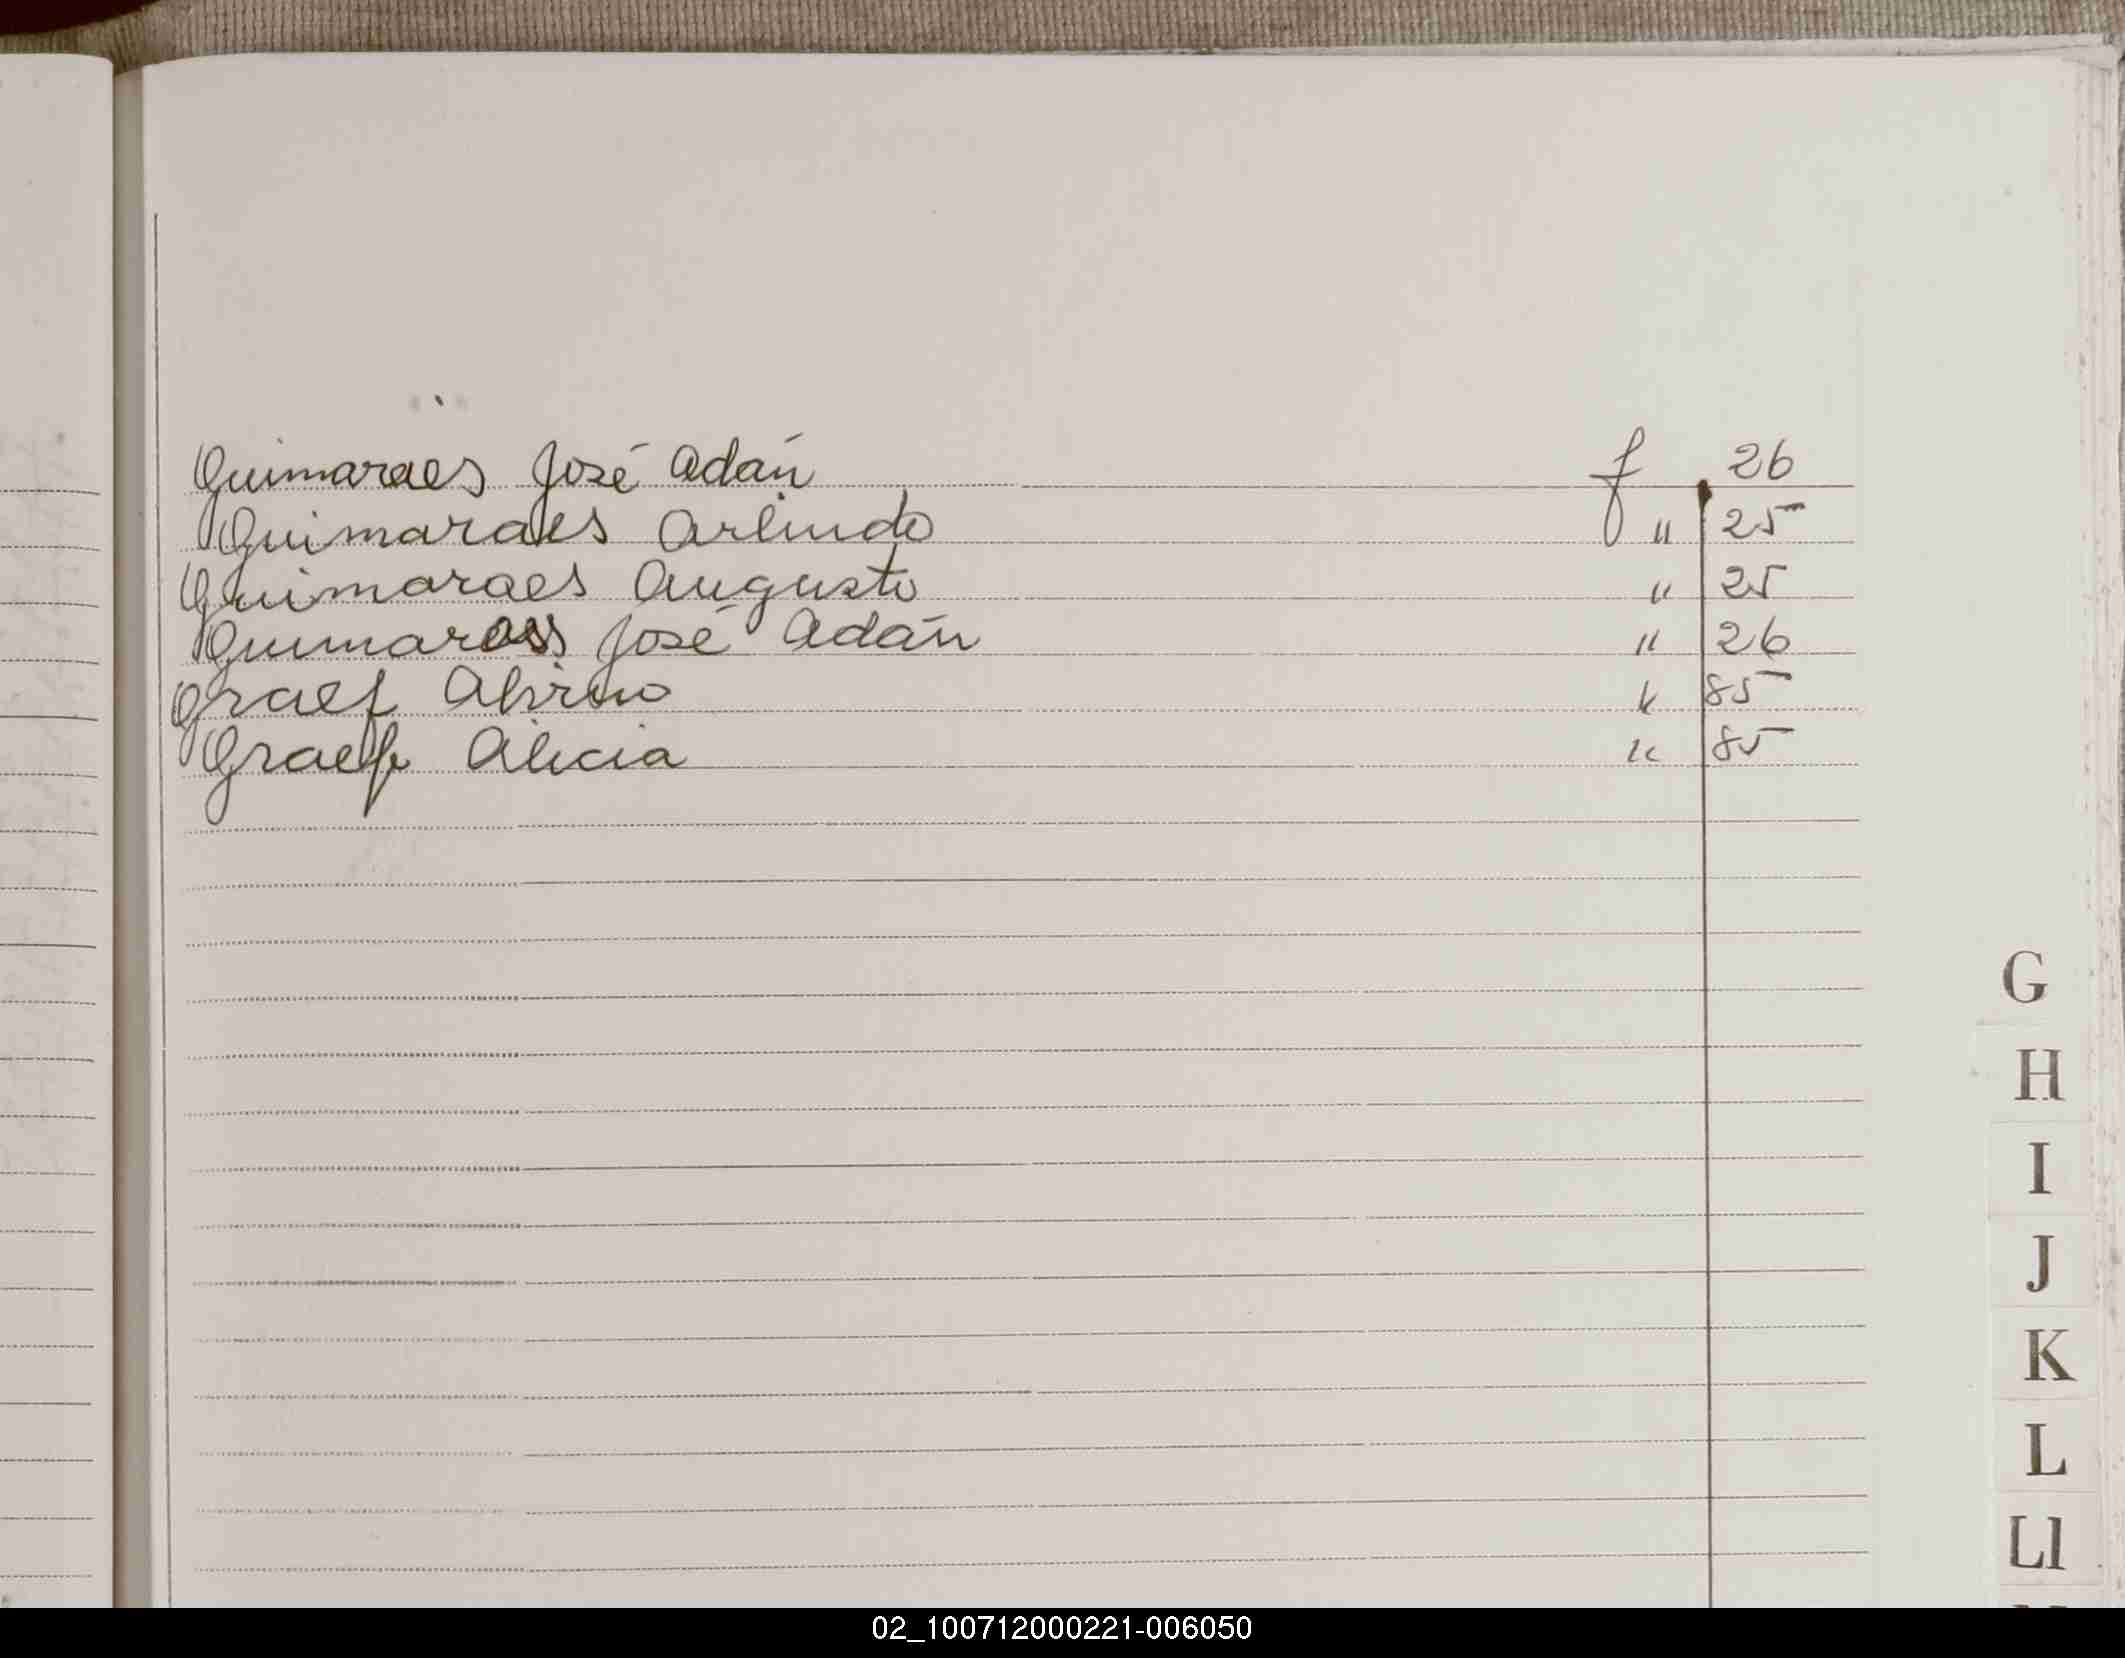 Guimaraes José Adán f 26
Guimaraes Arlindo " 25
Guimaraes Augusto " 25
Guimaraes José Adán " 26
Graef " 85
Graef Alicia " 85
G
H
I
J
K
L
Ll
02_100712000221-006050